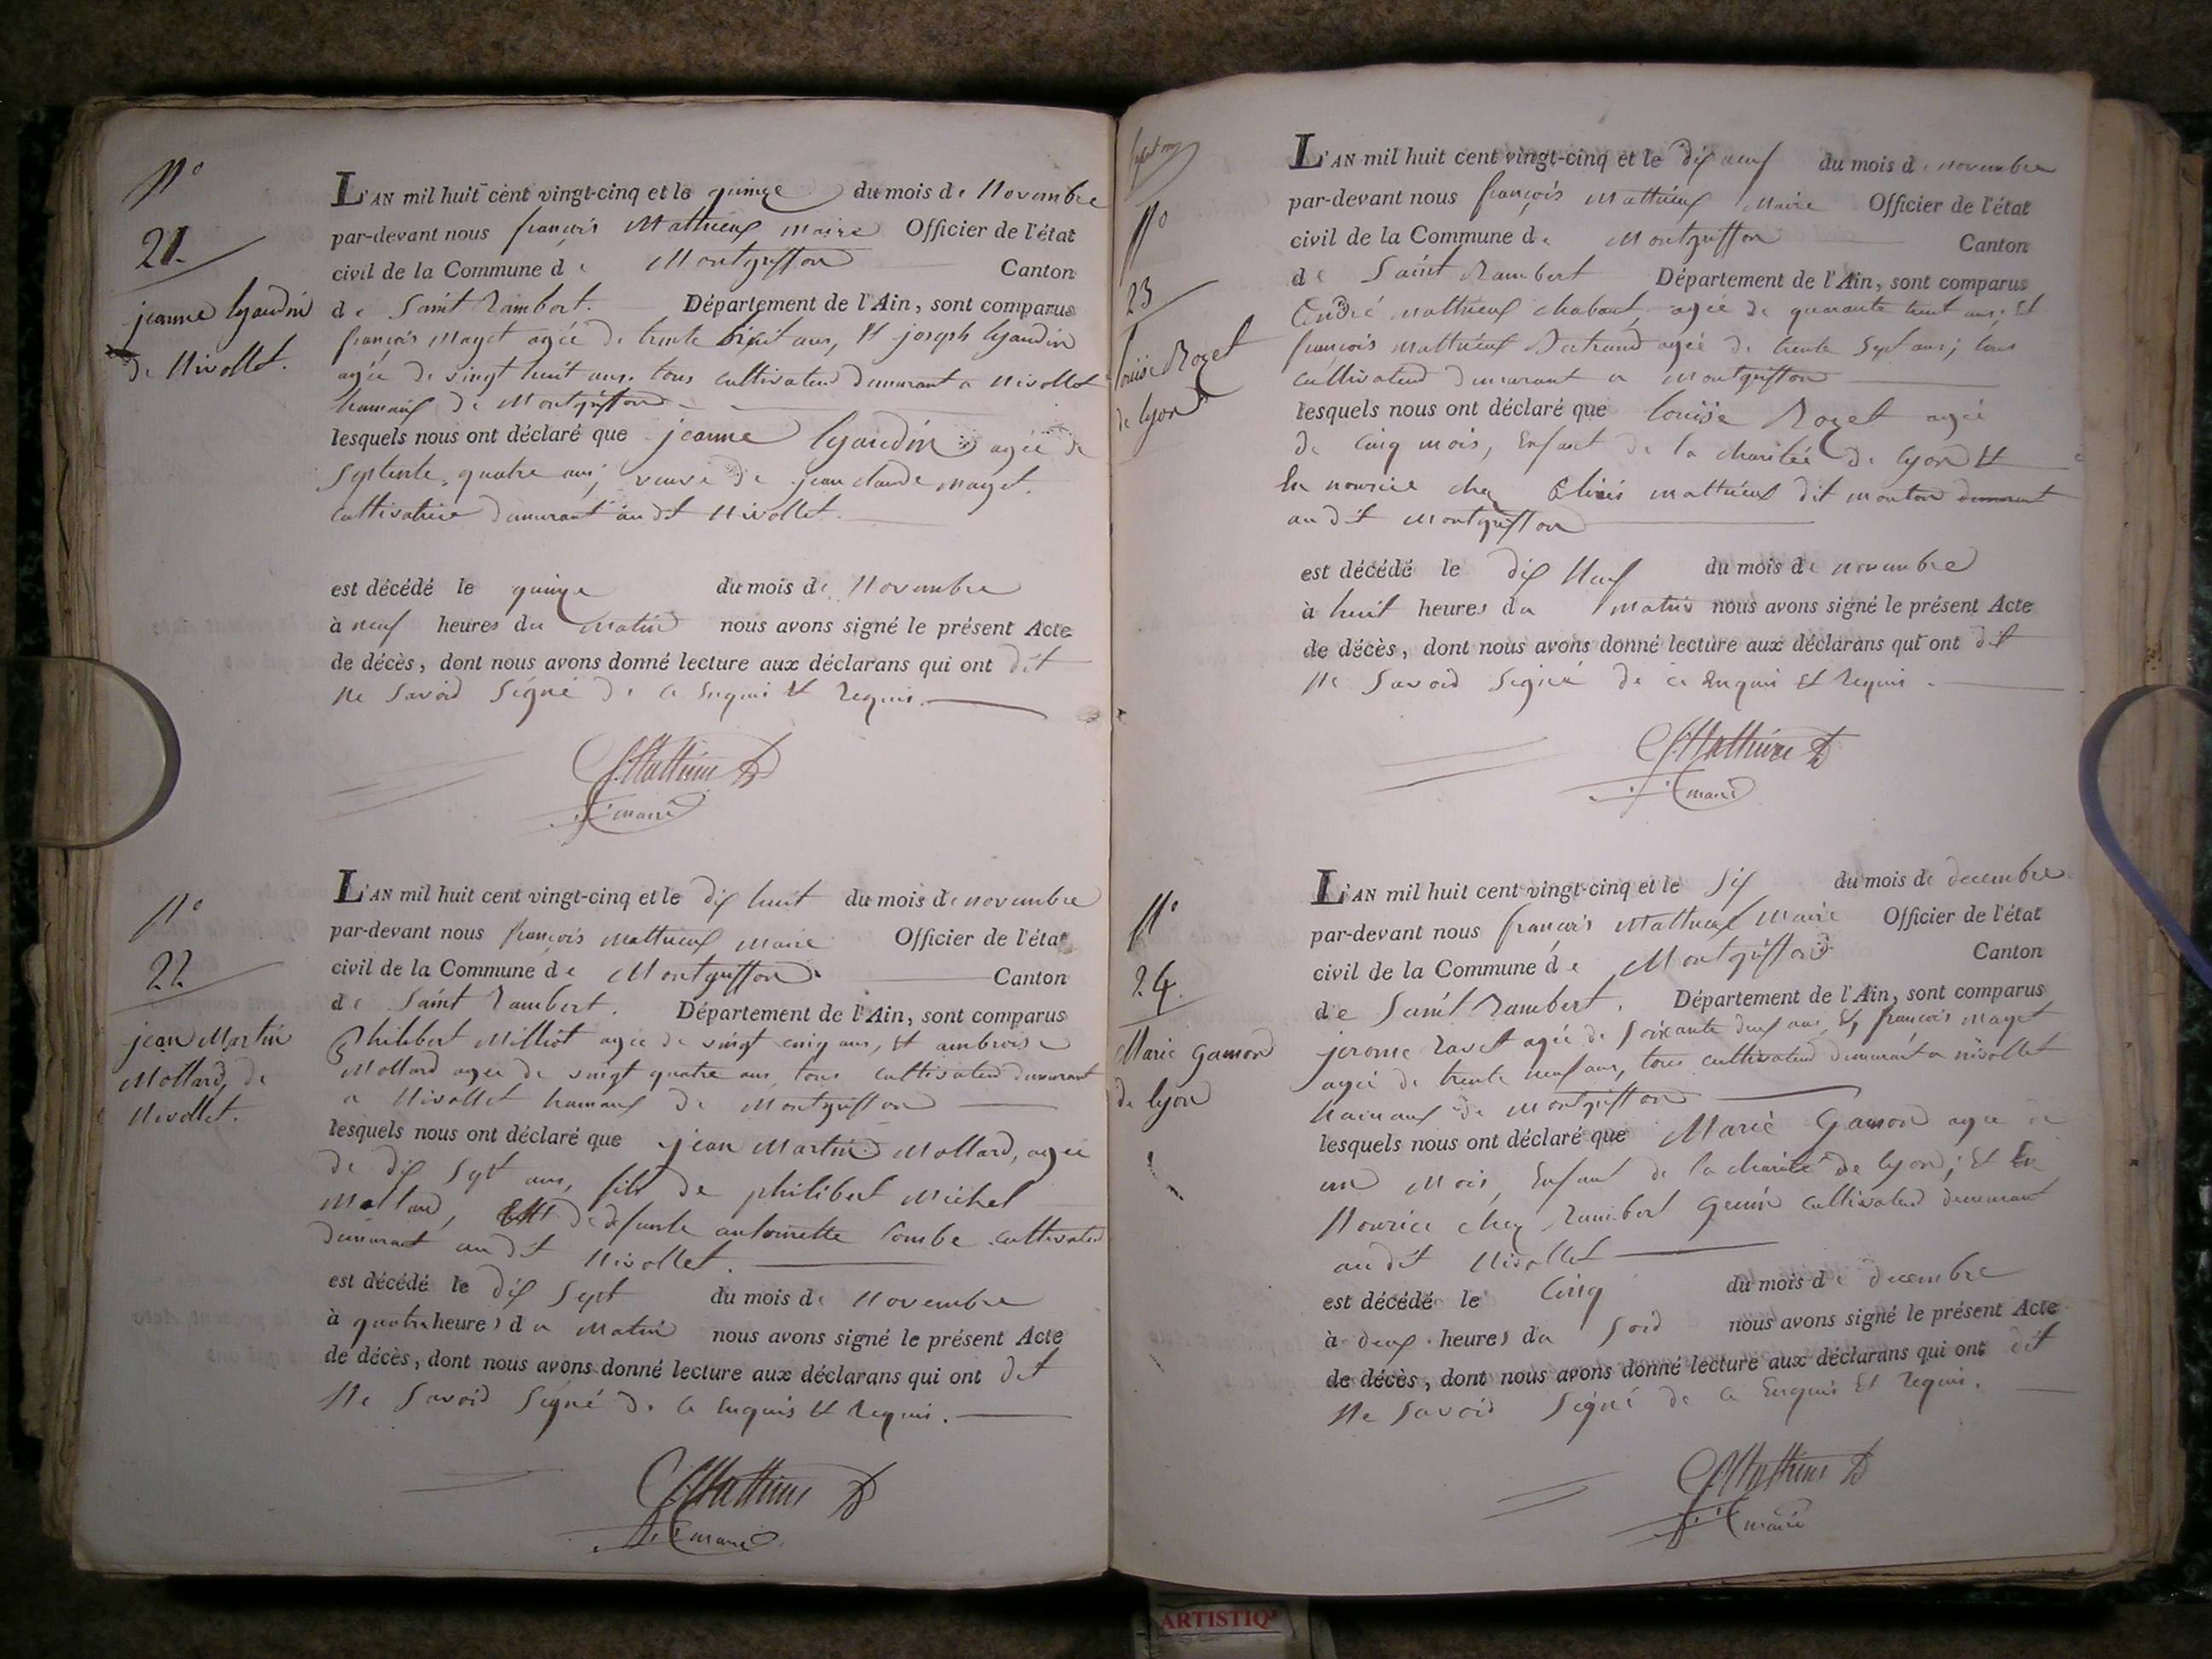 N°
21.
jeanne lyaudin
de Nivollet.
L'AN mil huit cent vingt-cinq et le quinze du mois de Novembre
par-devant nous françois Mathieux maire Officier de l'état
civil de la Commune de Montgriffon Canton
de Saint Rambert. Département de l'Ain, sont comparus
françois Mayet agée de trente huit ans, et joseph lyaudin
agée de vingt huit ans. tous cultivateurs demurant a Nivollet
hamaux de Montgriffon
lesquels nous ont déclaré que jeanne lyaudin agée de
septente quatre ans; veuve de jean claude mayet.
cultivatrice demurant audit Nivollet.
est décédé le quinze du mois de Novembre
à neuf heures du Matin nous avons signé le présent Acte
de décès, dont nous avons donné lecture aux déclarans qui ont dit
Ne Savoir Signé de ce Enquis et Requis.
f. Mathieux B
maire
N°
22
jean Martin
Mollard, de
Nivollet.
L'AN mil huit cent vingt-cinq et le dix huit du mois de novembre
par-devant nous françois Mathieux Maire Officier de l'état
civil de la Commune de Montgriffon. Canton
de Saint Rambert. Département de l'Ain, sont comparus
Philibert Milliot agée de vingt cinq ans, et ambroise
Mollard agée de vingt quatre ans tous cultivateurs demurant
a Nivollet hamaux de Montgriffon
lesquels nous ont déclaré que jean Martin Mollard, agée
de dix Sept ans, fils de philibert Michel
Mollard, de defunte antoinette Combe cultivateur
demurant audit Nivollet.
est décédé le dix Sept du mois de Novembre
à quatre heures du Matin nous avons signé le présent Acte
de décès, dont nous avons donné lecture aux déclarans qui ont dit
Ne Savoir Signé de ce Enquis et Requis.
f. Mathieux B
maire
N°
23
louise Rozet
de lyon
L'AN mil huit cent vingt-cinq et le dix neuf du mois de novembre
par-devant nous françois Mathieux Maire Officier de l'état
civil de la Commune de Montgriffon Canton
de Saint Rambert Département de l'Ain, sont comparus
André Mathieux chabout, agée de quarante huit ans; Et
françois Mathieux Bertrand agée de trente Sept ans; tous
cultivateurs demurant a Montgriffon
lesquels nous ont déclaré que louise Rozet agée
de cinq mois, Enfant de la charitée de lyon et
En nourice chez mathieux dit mouton demurant
audit Montgriffon
est décédé le dix Neuf du mois de novembre
à huit heures du matin nous avons signé le présent Acte
de décès, dont nous avons donné lecture aux déclarans qui ont dit
Ne Savoir Signé de ce Enquis Et Requis.
f. Mathieux B
maire
N°
24.
Marie Gamon
de lyon
L'AN mil huit cent vingt-cinq et le Six du mois de decembre
par-devant nous françois Mathieux Maire Officier de l'état
civil de la Commune de Montgriffon Canton
de Saint Rambert. Département de l'Ain, sont comparus
jerome Ravet agée de Soixante deux ans, Et françois mayet
agée de trente neuf ans, tous cultivateurs demurant a nivollet
hamaux de Montgriffon
lesquels nous ont déclaré que Marie Gamon agée de
un Mois, Enfant de la charité de lyon; Et En
Nourice chez Rambert Genin cultivateur demurant
audit Nivollet
est décédé le Cinq du mois de decembre
à deux heures du Soir nous avons signé le présent Acte
de décès, dont nous avons donné lecture aux déclarans qui ont dit
Ne Savoir Signé de ce Enquis Et Requis.
f. Mathieux B
maire
ARTISTIQ